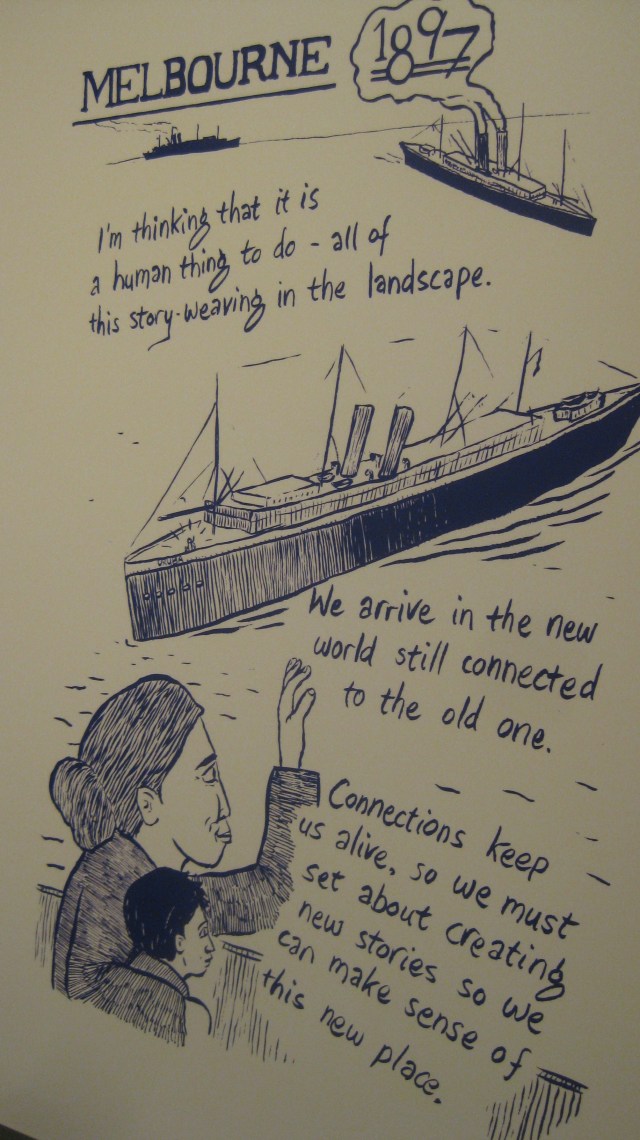 MELBOURNE
1897
I'm thinking that it is
a human thing to do - all of
this story-weaving in the landscape.
We arrive in the new
world still connected
to the old one.
Connections keep
us alive, so we must
set about creating
new stories so we
can make sense of
this new place.